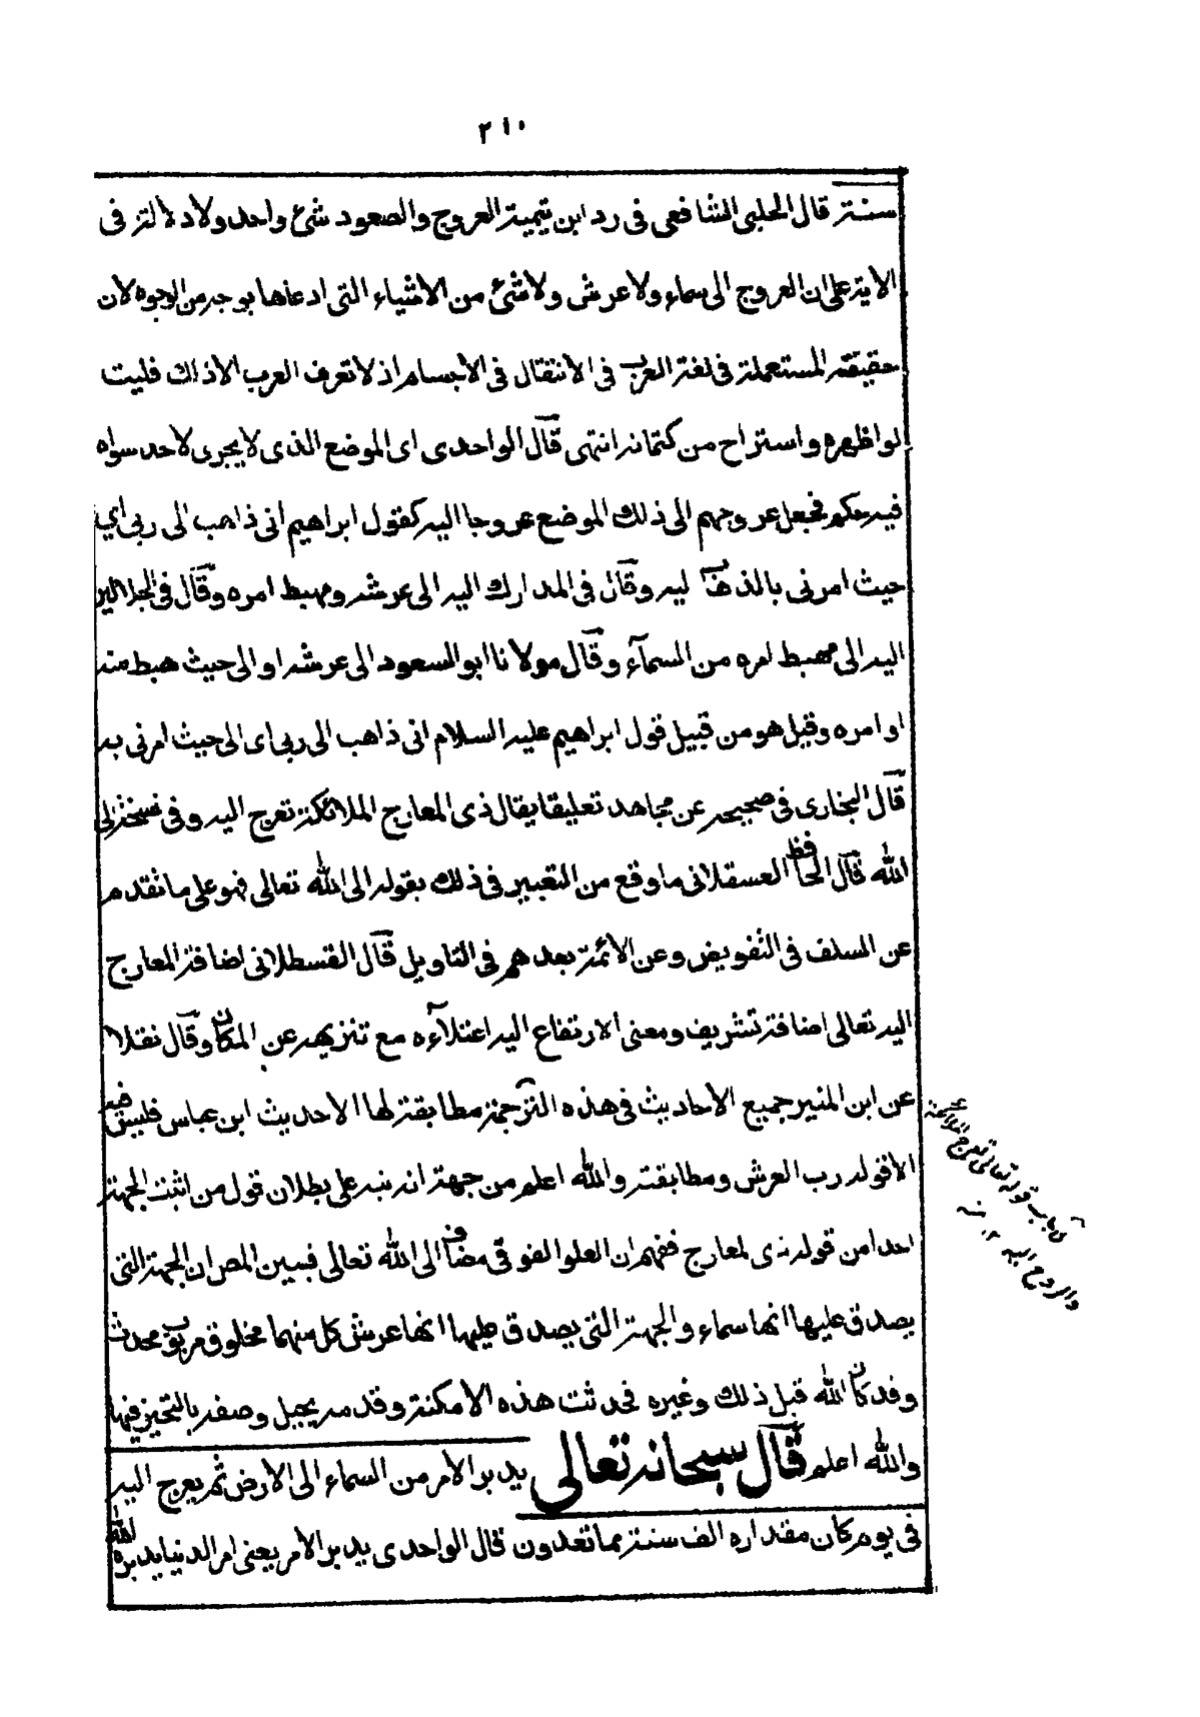 ٢١٠
سنة قال الحلبی الشافعی فی رد ابن تیمیة العروج والصعود شئ واحد ولا دلالة فی
الایة علی ان العروج الی سماء ولا عرش ولا شئ من الاشیاء التی ادعاها بوجه من الوجوه لان
حقیقته المستعملة فی لغة العرب فی الانتقال فی الاجسام اذ لا تعرف العرب الا ذلك فلیت
لو اظهره واستراح من کتمانه انتهی قال الواحدی ای الموضع الذی لا یجری لاحد سواه
فیه حکم فجعل عروجهم الی ذلك الموضع عروجا الیه کقول ابراهیم انی ذاهب الی ربی ای
حیث امرنی بالذهاب الیه وقال فی المدارك الیه الی عرشه ومهبط امره وقال فی الجلالین
الیه الی مهبط امره من السمآء وقال مولانا ابو السعود الی عرشه او الی حیث هبط منه
اوامره وقیل هو من قبیل قول ابراهیم علیه السلام انی ذاهب الی ربی ای الی حیث امرنی به
قال البخاری فی صحیحه عن مجاهد تعلیقا یقال ذی المعارج الملائکة تعرج الیه وفی نسخة الی
الله قال الحافظ العسقلانی ما وقع من التعبیر فی ذلك بقوله الی الله تعالی فهو علی ما تقدم
عن السلف فی التفویض وعن الائمة بعدهم فی التاویل قال القسطلانی اضافة المعارج
الیه تعالی اضافة تشریف ومعنی الارتفاع الیه اعتلآءه مع تنزیهه عن المکان وقال نقلا
عن ابن المنیر جمیع الاحادیث فی هذه الترجمة مطابقة لها الا حدیث ابن عباس فلیس فیه
الا قوله رب العرش ومطابقته والله اعلم من جهة انه نبه علی بطلان قول من اثبت الجهة
احدا من قوله ذی لمعارج ففهم ان العلو الفوقی مضاف الی الله تعالی فبین المص ان الجهة التی
یصدق علیها انها سماء والجهة التی یصدق علیها انها عرش کل منهما مخلوق مربوب محدث
وقد کان الله قبل ذلك وغیره فحدثت هذه الامکنة وقدمه یحیل وصفه بالتحیز فیها
والله اعلم قال سبحانه تعالی یدبر الامر من السماء الی الارض ثم یعرج الیه
فی یوم کان مقداره الف سنة مما تعدون قال الواحدی یدبر الامر یعنی امر الدنیا یدبره الله
باب قوله تعالی تعرج الملائکة
والروح الیه ١٢ منه